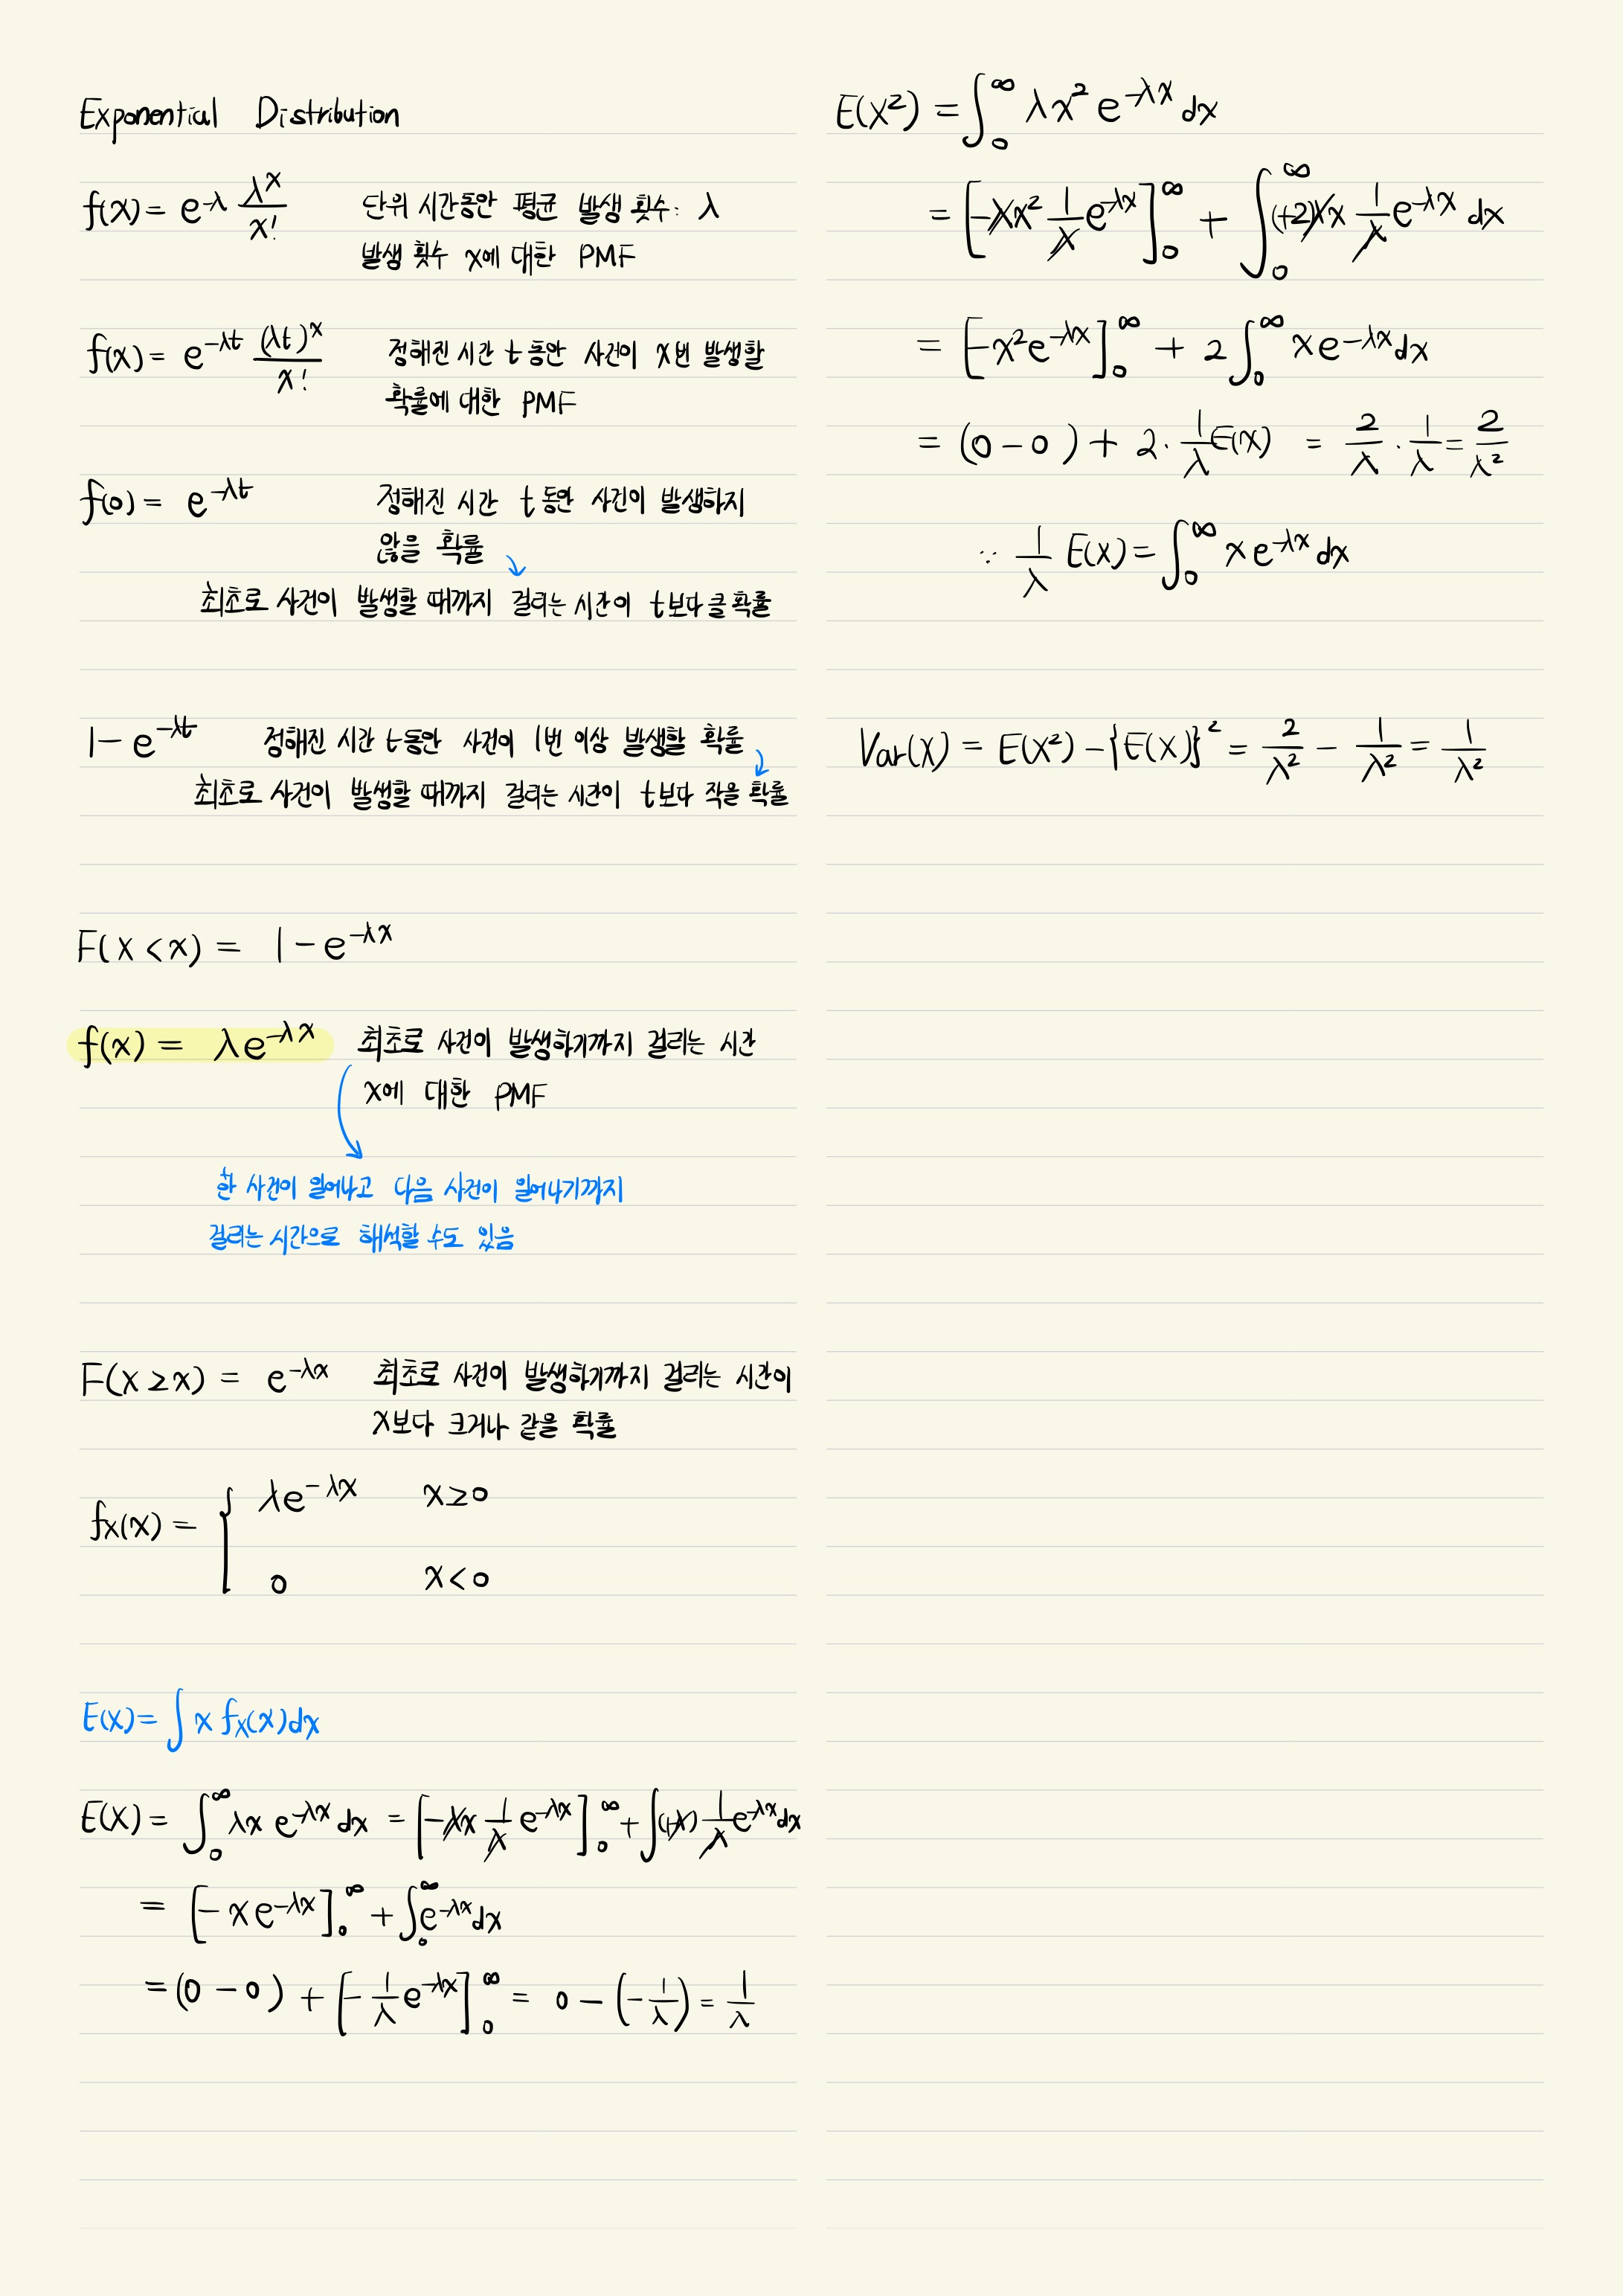 Exponential Distribution
f(x) = e^{-λ} λ^x / x! 단위 시간동안 평균 발생 횟수: λ
발생 횟수 x에 대한 PMF
f(x) = e^{-λt} (λt)^x / x! 정해진 시간 t동안 사건이 x번 발생할
확률에 대한 PMF
f(0) = e^{-λt} 정해진 시간 t동안 사건이 발생하지
않을 확률
최초로 사건이 발생할 때까지 걸리는 시간이 t보다 클 확률
1 - e^{-λt} 정해진 시간 t동안 사건이 1번 이상 발생할 확률
최초로 사건이 발생할 때까지 걸리는 시간이 t보다 작을 확률
F(X < x) = 1 - e^{-λx}
f(x) = λe^{-λx} 최초로 사건이 발생하기까지 걸리는 시간
x에 대한 PMF
한 사건이 일어나고 다음 사건이 일어나기까지
걸리는 시간으로 해석할 수도 있음
F(X ≥ x) = e^{-λx} 최초로 사건이 발생하기까지 걸리는 시간이
x보다 크거나 같을 확률
f_X(x) = { λe^{-λx} x ≥ 0
0 x < 0
E(X) = ∫ x f_X(x) dx
E(X) = ∫_0^∞ λx e^{-λx} dx = [-λx 1/λ e^{-λx}]_0^∞ + ∫(+λ) 1/λ e^{-λx} dx
= [-x e^{-λx}]_0^∞ + ∫_0^∞ e^{-λx} dx
= (0 - 0) + [-1/λ e^{-λx}]_0^∞ = 0 - (-1/λ) = 1/λ
E(X²) = ∫_0^∞ λx² e^{-λx} dx
= [-λx² 1/λ e^{-λx}]_0^∞ + ∫_0^∞ (+2)λx 1/λ e^{-λx} dx
= [-x² e^{-λx}]_0^∞ + 2∫_0^∞ x e^{-λx} dx
= (0 - 0) + 2 · 1/λ E(X) = 2/λ · 1/λ = 2/λ²
∵ 1/λ E(X) = ∫_0^∞ x e^{-λx} dx
Var(X) = E(X²) - {E(X)}² = 2/λ² - 1/λ² = 1/λ²